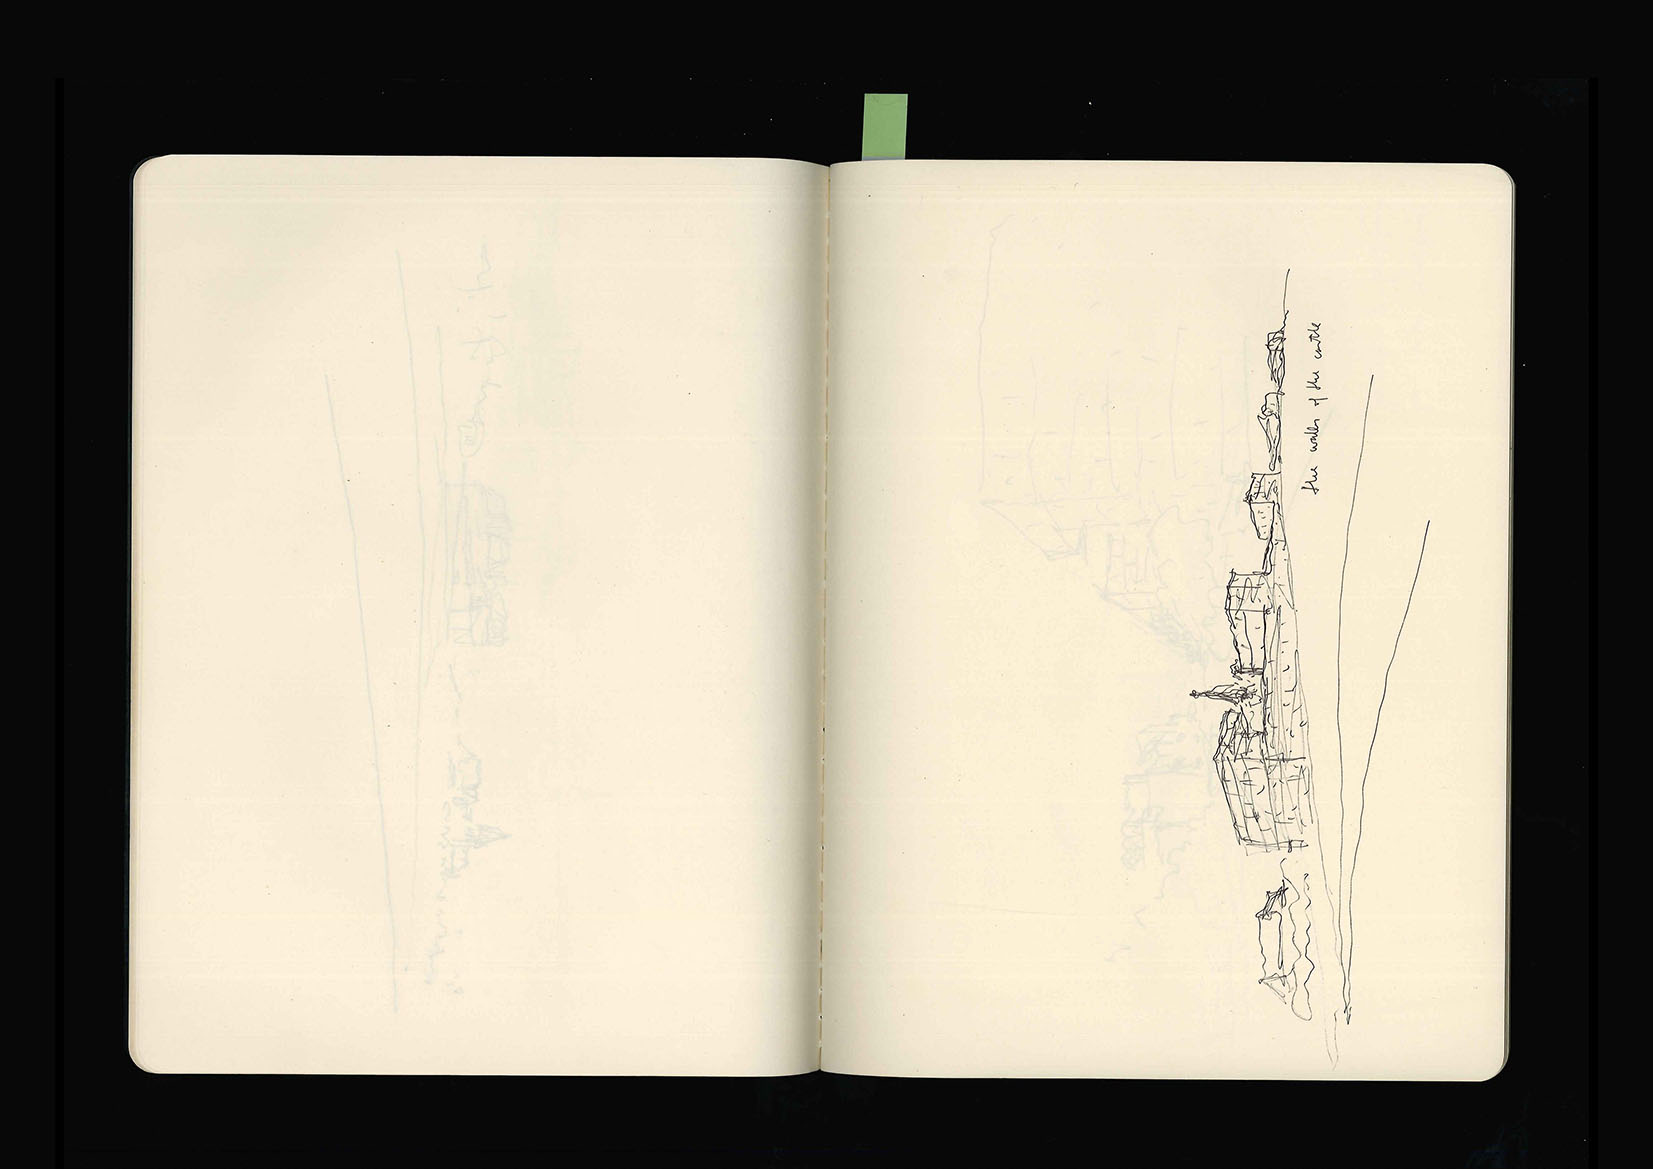 the walls of the castle